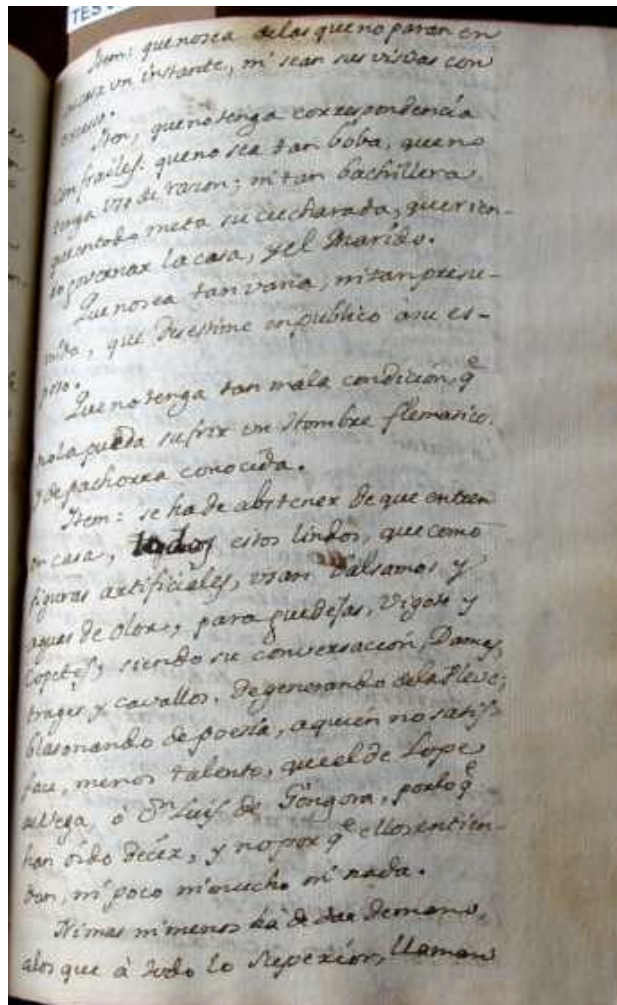 TES
Item: que no sea delas que no paran en
casa un instante, ni sean sus visitas con
exceso.
Iten, que no tenga correspondencia
con frailes: que no sea tan boba, que no
tenga uso de razon; ni tan bachillera,
que entodo meta su cucharada, querien-
do governar la casa, y el Marido.
Que no sea tan vana, ni tan presu-
mida, que desestime en publico â su es-
poso.
Que no tenga tan mala condición, q.e
no la pueda sufrir un Hombre flematico,
y de pachorra conocida.
Item: se ha de abstener de que entren
en casa, todos estos lindos, que como
figuras artificiales, usan balsamos y
aguas de olor, para guedejas, Vigote y
Copetes, siendo su conversación, Damas,
trages, y cavallos. Degenerando dela Pleve;
blasonando de poesia, a quien no satis-
face, menos talento, que el de Lope
de Vega, ó Dn Luis de Góngora, porlo q.e
han oido decir, y no por q.e ellos entien-
dan, ni poco ni mucho ni nada.
Ni mas ni menos há de dar de mano,
alos que à todo lo llaman